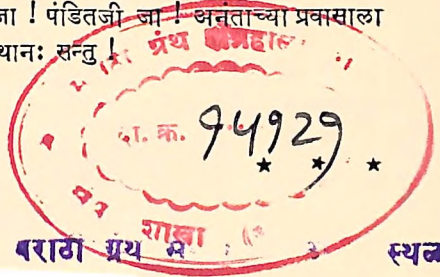 जा ! पंडितजी जा ! अनंताच्या प्रवासाला
थानः सन्तु !
ग्रंथ
दा. क्र. 94929
* * *
शाखा
मराठी ग्रंथ स्थळ